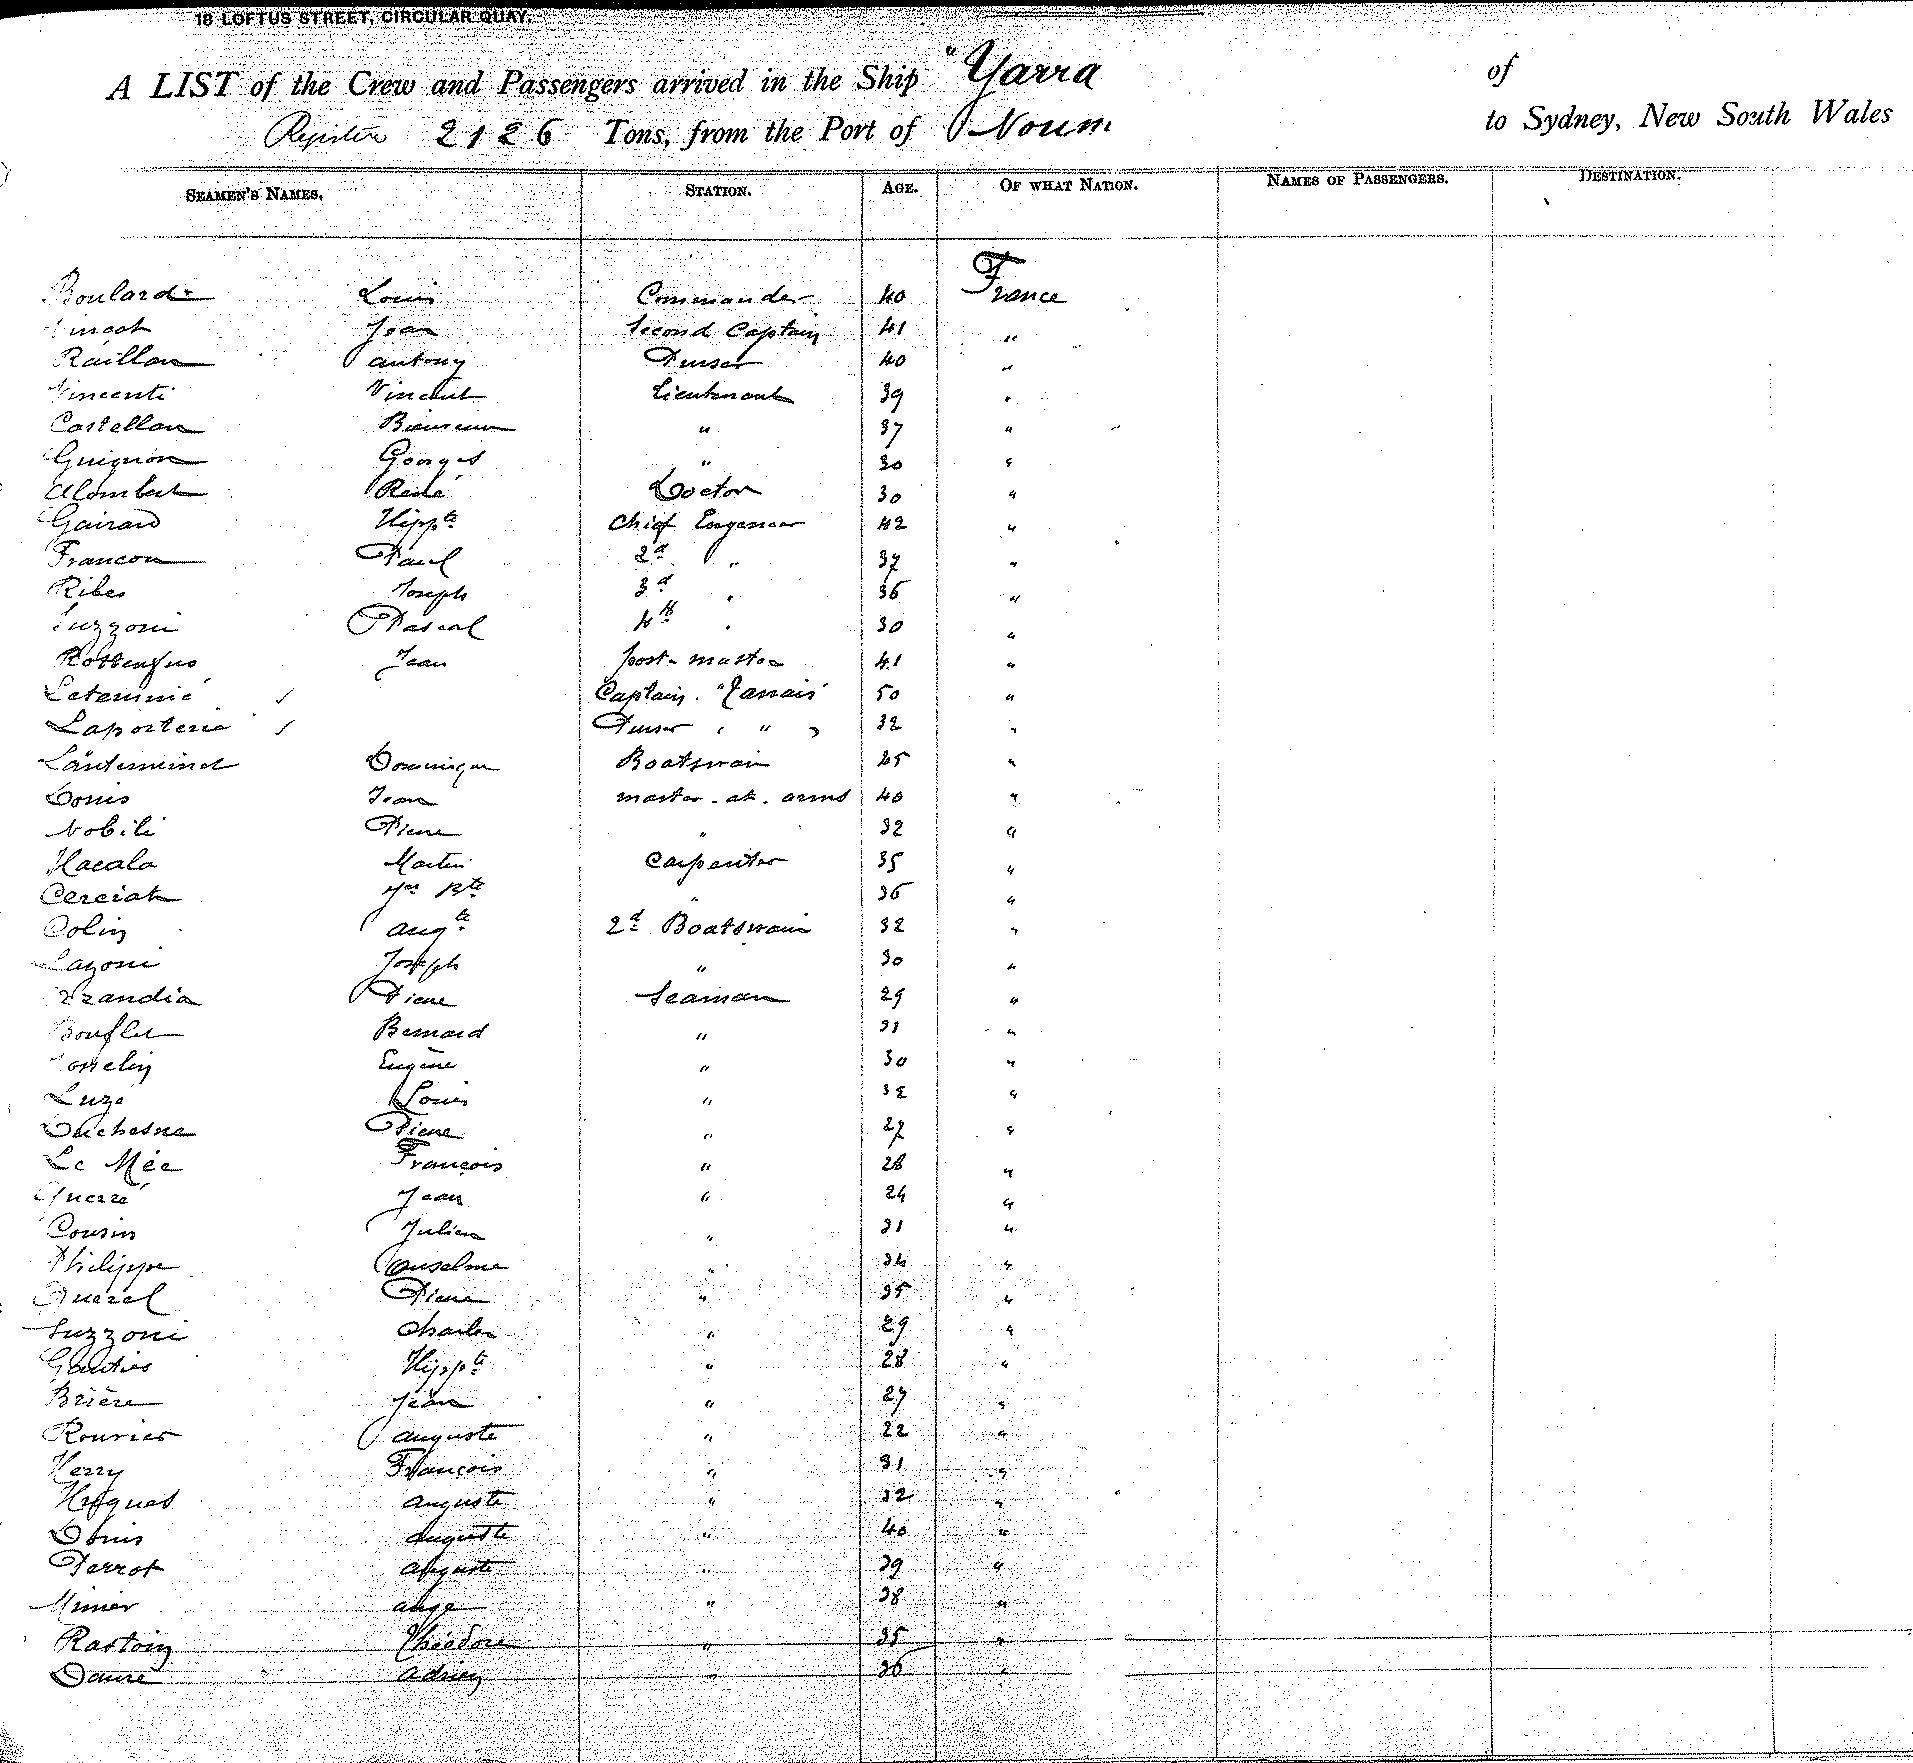 18 LOFTUS STREET, CIRCULAR QUAY.
A LIST of the Crew and Passengers arrived in the Ship "Yarra of
Register 2126 Tons, from the Port of Noum to Sydney, New South Wales
SEAMEN'S NAMES. STATION. AGE. OF WHAT NATION. NAMES OF PASSENGERS. DESTINATION.
Boulard Louis Commander 40 France
Jean Second Captain 41 "
Raillon antony Purser 40 "
Vincenti Vincent Lieutenant 39 "
Castellan " 37 "
Guignon Georges " 30 "
Alombert René Doctor 30 "
Gairard Hippte Chief Engeneer 42 "
Francou Paul 2d " 37 "
Ribes Joseph 3d " 36 "
Suzzoni Pascal 4th " 30 "
Jean post-master 41 "
Captain "Tanais" 50 "
Laporterie Purser " " 32 "
Dominique Boatswain 45 "
Jean master-at-arms 40 "
Nobili Pierre " 32 "
Macala Martin Carpenter 35 "
Jn Bte " 36 "
Colin augte 2d Boatswain 32 "
Joseph " 30 "
Pierre Seaman 29 "
Bouflet Bernard " 31 "
Eugène " 30 "
Luze Louis " 32 "
Duchesne Pierre " 27 "
Le Mée François " 28 "
Guerré Jean " 24 "
Cousin Julien " 31 "
Philippe Anselme " 34 "
Querel Pierre " 35 "
Suzzoni Charles " 29 "
Gautier Hippte " 28 "
Brière Jean " 27 "
Rouvier auguste " 22 "
Herry François " 31 "
Huguet auguste " 32 "
auguste " 40 "
Perrot auguste " 39 "
Minier ange " 38 "
Rastoin Théodore " 35 "
Dauré adrien " 36 "